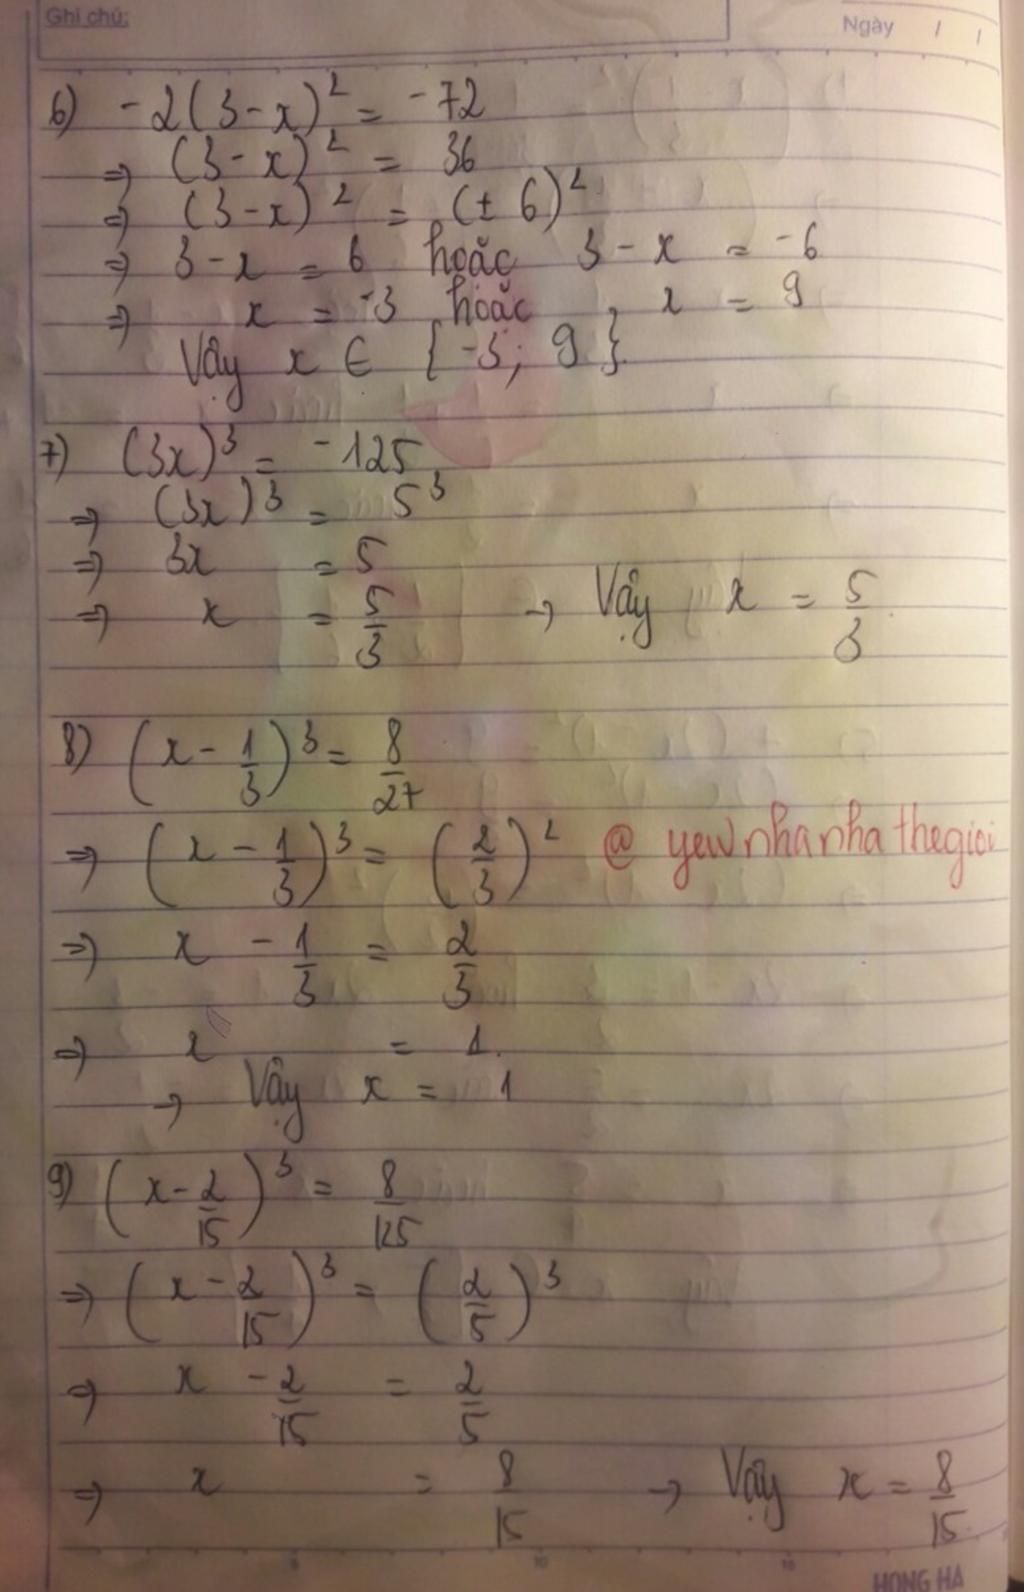 Ghi chú:
Ngày / /
6) -2(3-x)² = -72
⇒ (3-x)² = 36
⇒ (3-x)² = (± 6)²
⇒ 3-x = 6 hoặc 3-x = -6
⇒ x = -3 hoặc x = 9
Vậy x ∈ {-3; 9}
7) (3x)³ = -125
⇒ (3x)³ = 5³
⇒ 3x = 5
⇒ x = 5/3 → Vậy x = 5/3
8) (x - 1/3)³ = 8/27
⇒ (x - 1/3)³ = (2/3)² @ yewnhanhathegioi
⇒ x - 1/3 = 2/3
⇒ x = 1.
→ Vậy x = 1
9) (x - 2/15)³ = 8/125
⇒ (x - 2/15)³ = (2/5)³
⇒ x - 2/15 = 2/5
⇒ x = 8/15 → Vậy x = 8/15
HONG HA